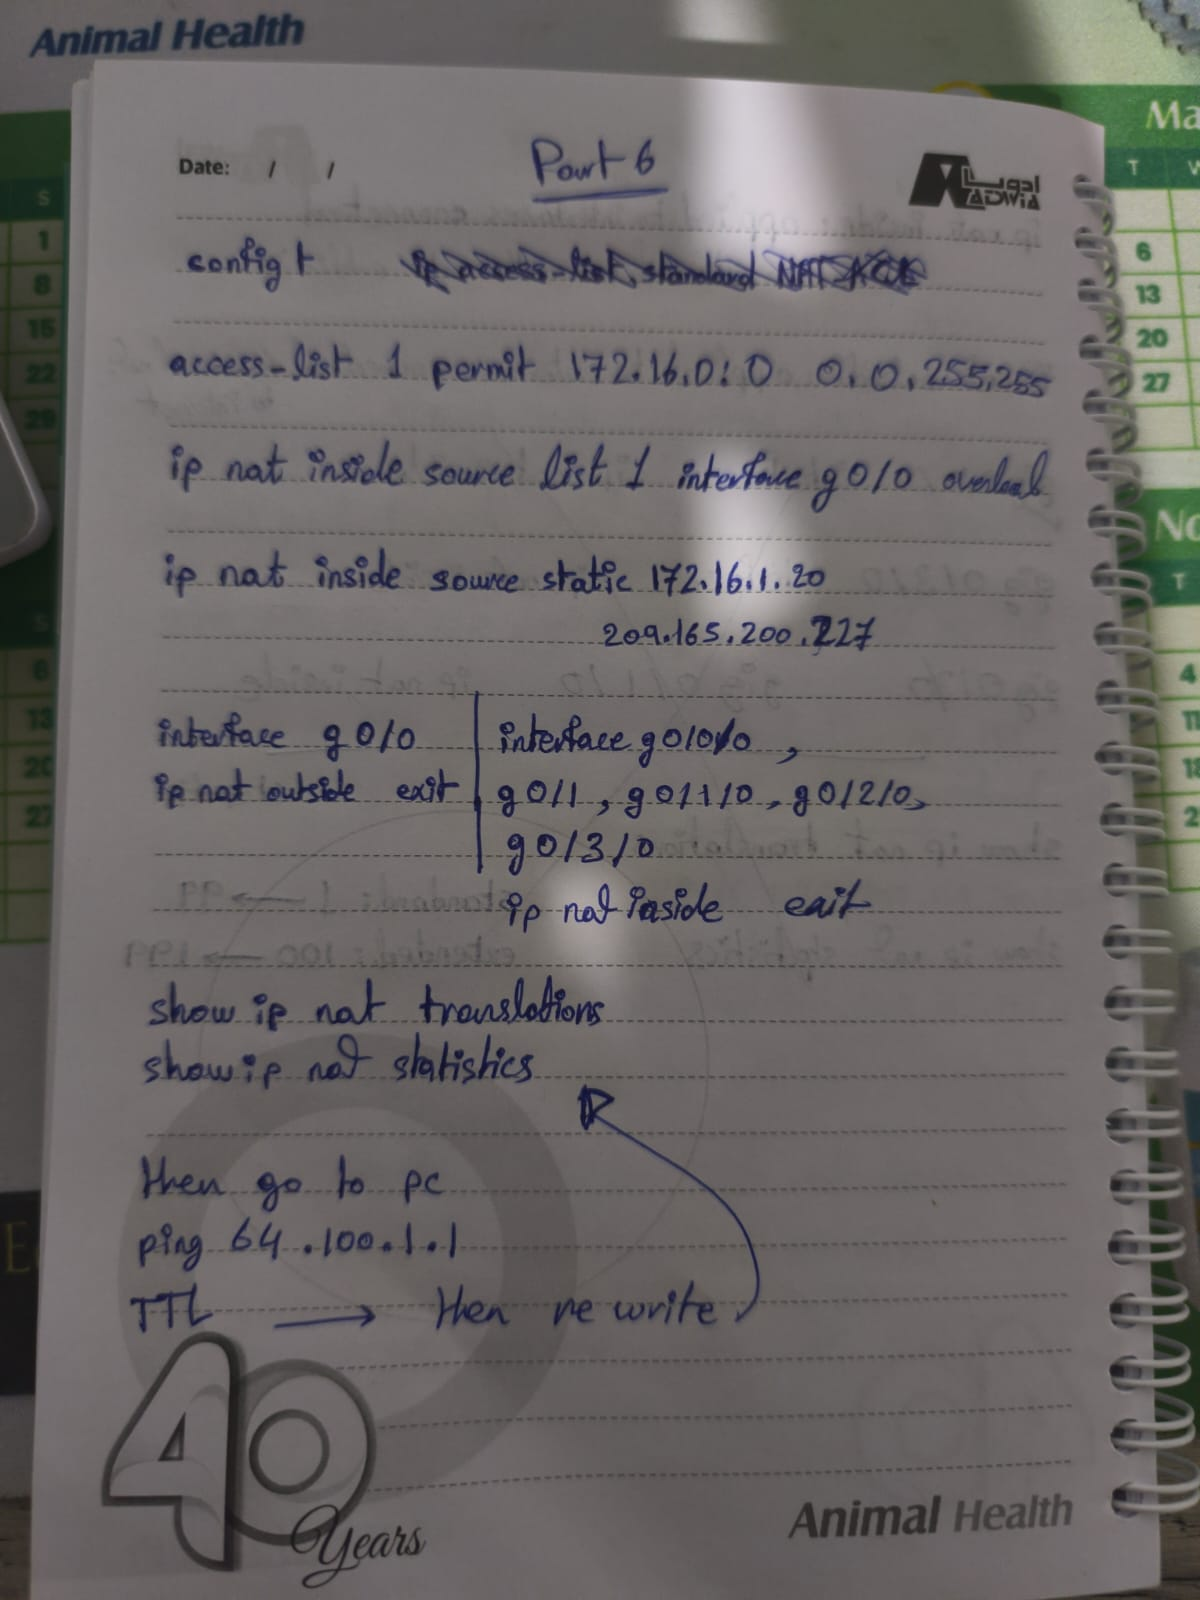 Animal Health
Date: / /
Part 6
ادويا
ADWIA
config t ip access-list standard NAT-ACL
access-list 1 permit 172.16.0.0 0.0.255.255
ip nat inside source list 1 interface g0/0 overload
ip nat inside source static 172.16.1.20
209.165.200.227
interface g0/0
ip nat outside exit
interface g0/0/0,
g0/1, g0/1/0, g0/2/0,
g0/3/0
ip nat inside exit
show ip nat translations
show ip nat statistics
then go to pc
ping 64.100.1.1
TTL → then re write
40
Years
Animal Health
Ma
T
6
13
20
27
No
T
4
S
1
8
15
22
29